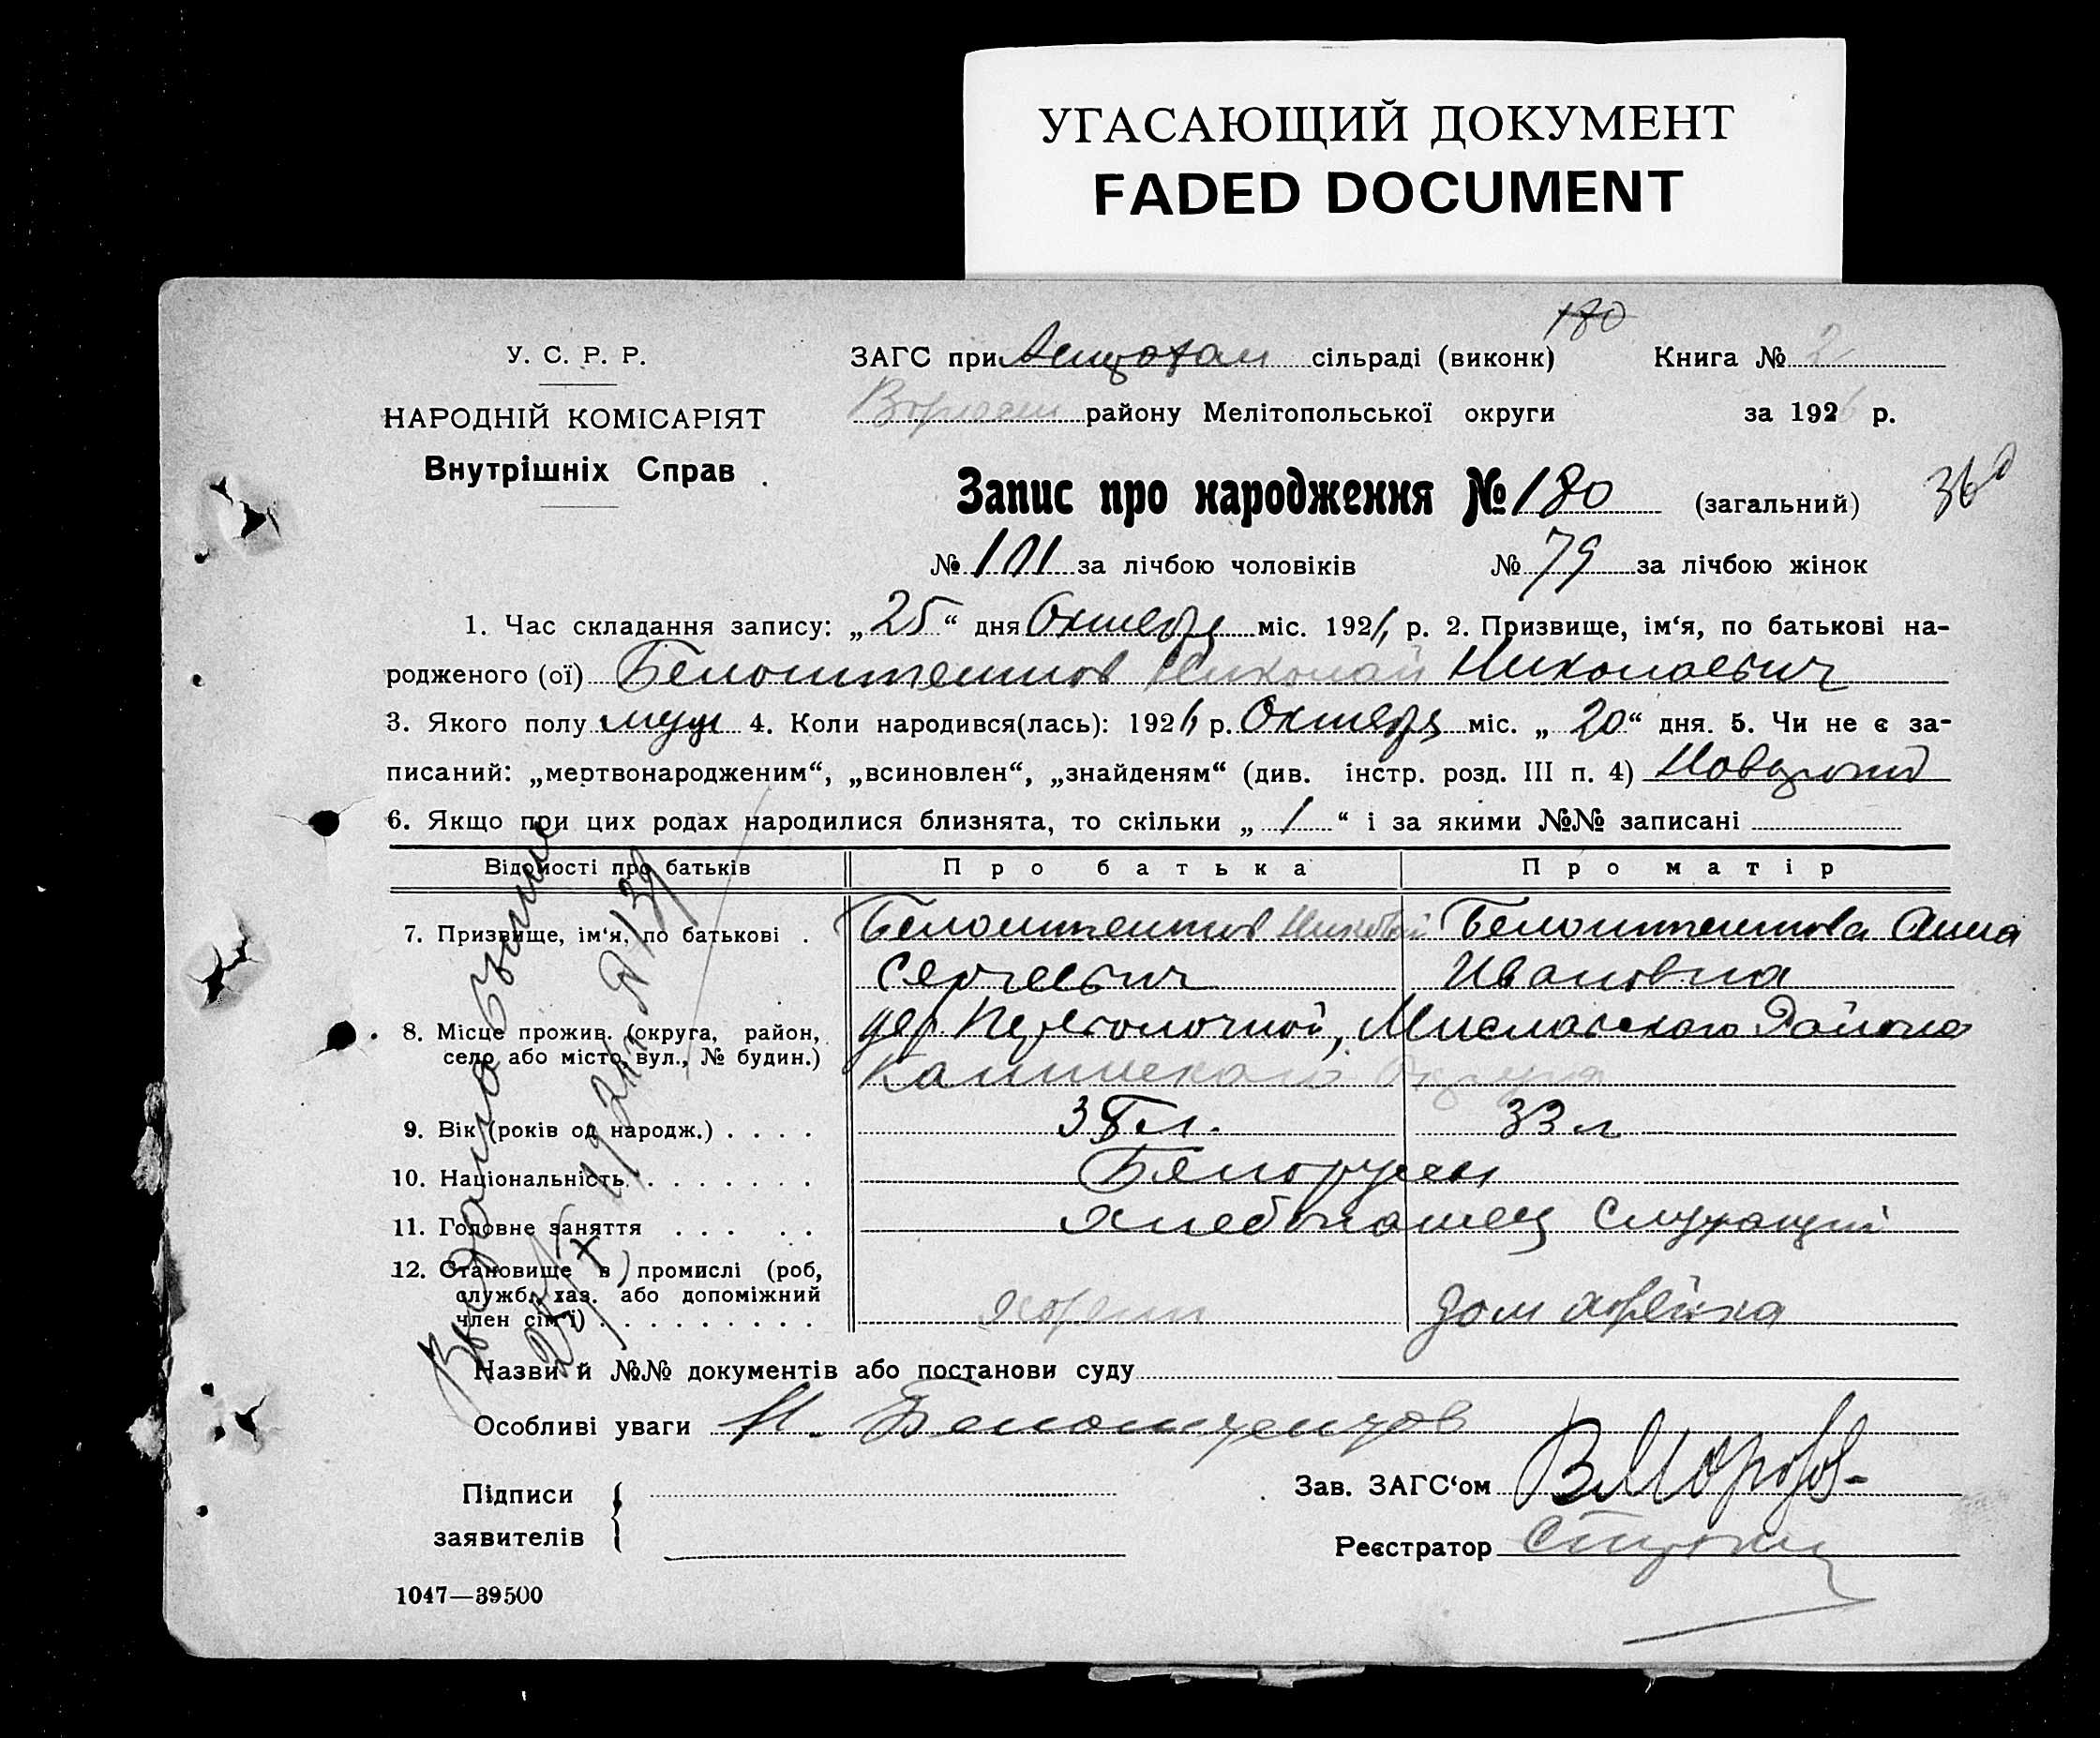 УГАСАЮЩИЙ ДОКУМЕНТ
FADED DOCUMENT
180
У. С. Р. Р.
ЗАГС при сільраді (виконк) Книга № 2
НАРОДНІЙ КОМІСАРІЯТ
району Мелітопольської округи за 1926 р.
Внутрішніх Справ
Запис про народження № 180 (загальний)
360
№ 101 за лічбою чоловіків № 79 за лічбою жінок
1. Час складання запису: „25“ дня Октября міс. 1926 р. 2. Призвище, ім‘я, по батькові на-
родженого (ої) Белоштентов Николай Николаевич
3. Якого полу муж 4. Коли народився(лась): 1926 р. Октября міс. „20“ дня. 5. Чи не є за-
писаний: „мертвонародженим“, „всиновлен“, „знайденям“ (див. інстр. розд. III п. 4)
6. Якщо при цих родах народилися близнята, то скільки „1“ і за якими №№ записані
Відомості про батьків Про батька Про матір
7. Призвище, ім‘я, по батькові . Белоштентов Николай Белоштентова Анна
Сергеевич Ивановна
8. Місце прожив. (округа, район, дер. Переволочной, Района
село або місто, вул., № будин.) Округа
9. Вік (років од народж.) . . . . 38 л. 33 л
10. Національність . . . . . . . Белорусы
11. Головне заняття . . . . . Хлебопашец Служащий
12. Становище в промислі (роб,
служб, хаз. або допоміжний
член сім‘ї) . . . . . . . . . . хозяин дом хозяйка
Назви й №№ документів або постанови суду
Особливі уваги Н. Белоштентов
Підписи
заявителів
Зав. ЗАГС‘ом В Морозов
Реєстратор
1047—39500
Выдана